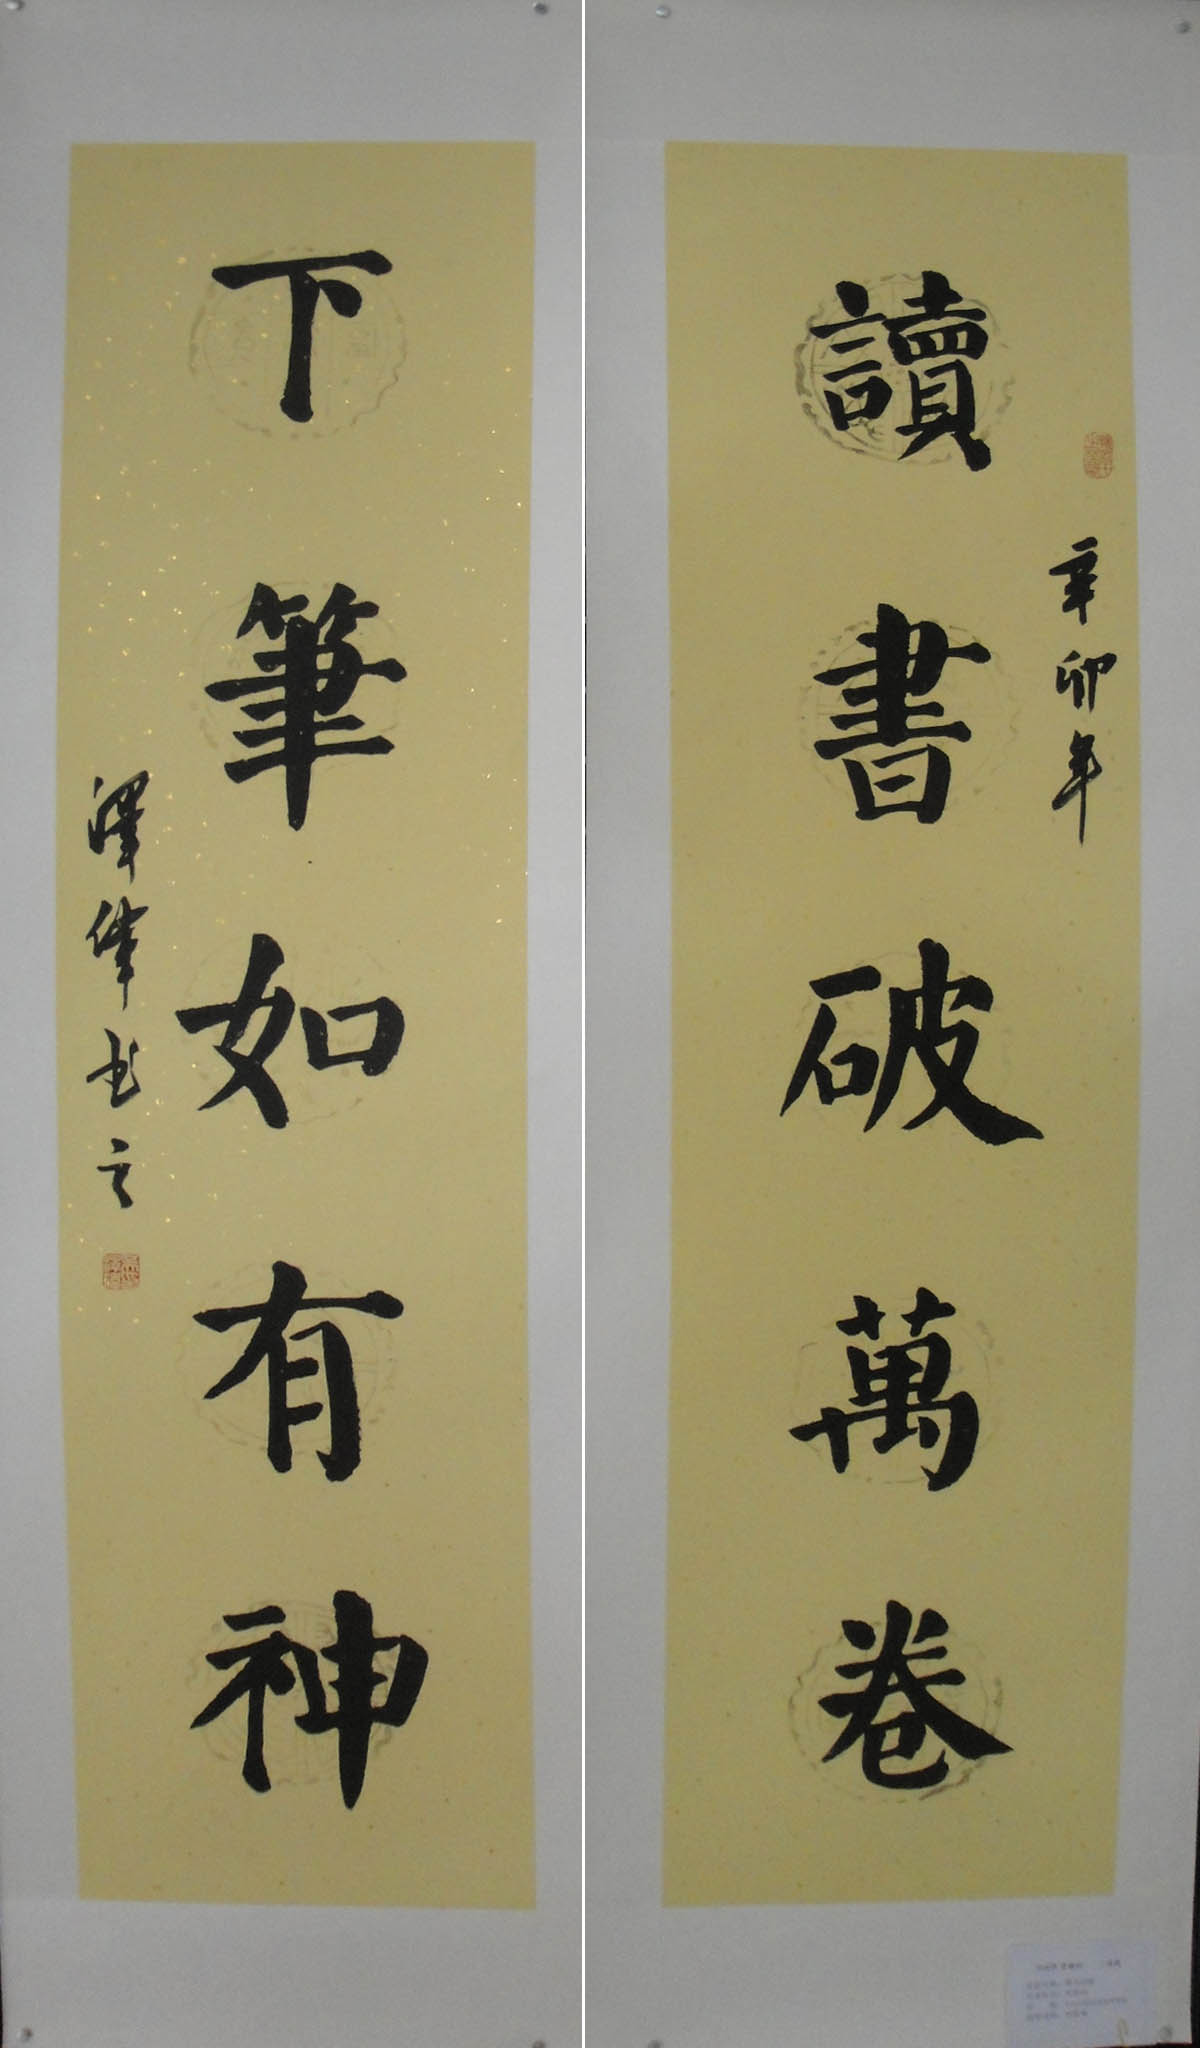 讀書破萬卷
辛卯年
下筆如有神
澤偉书之